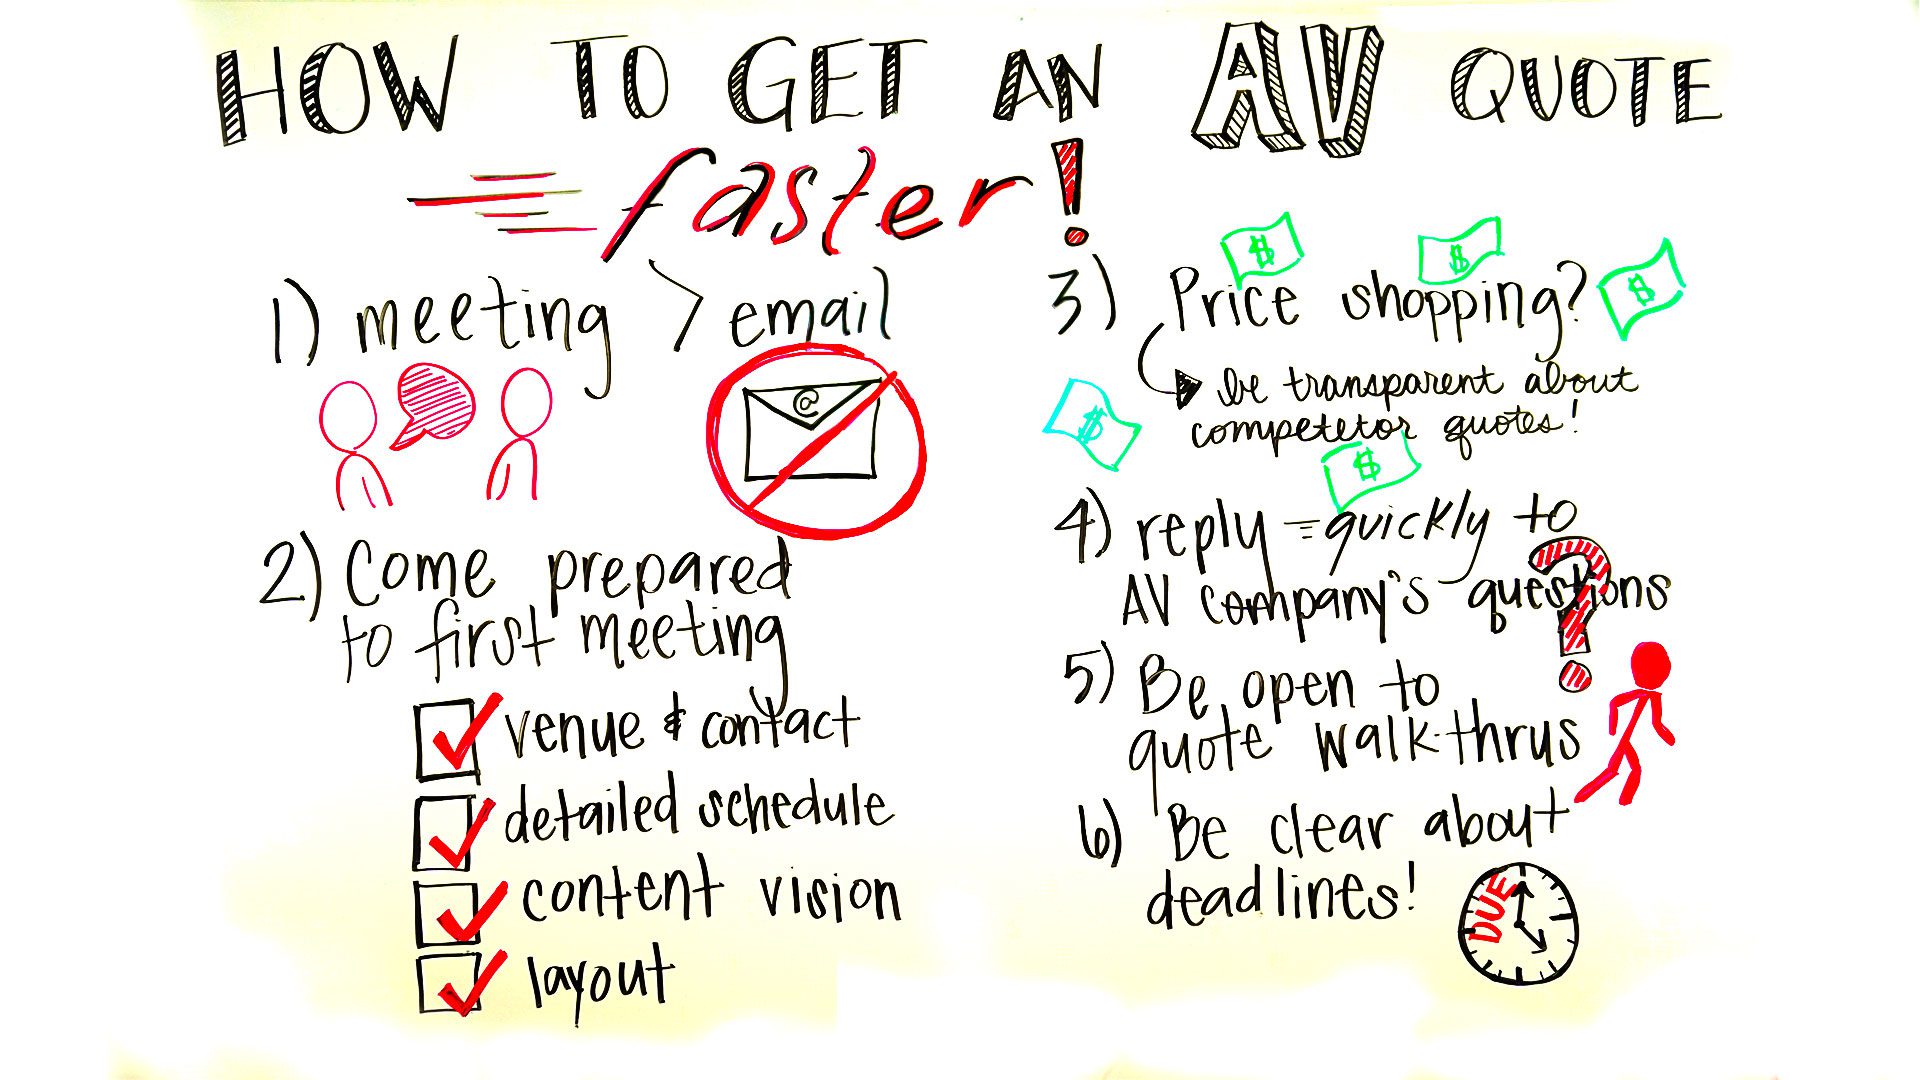 HOW TO GET AN AV QUOTE
faster!
1) meeting > email
@
2) Come prepared
to first meeting
venue & contact
detailed schedule
content vision
layout
$ $ $
3) Price shopping?
be transparent about
$ competetor quotes!
$
4) reply quickly to
AV company's questions
?
5) Be open to
quote walk-thrus
6) Be clear about
deadlines!
DUE